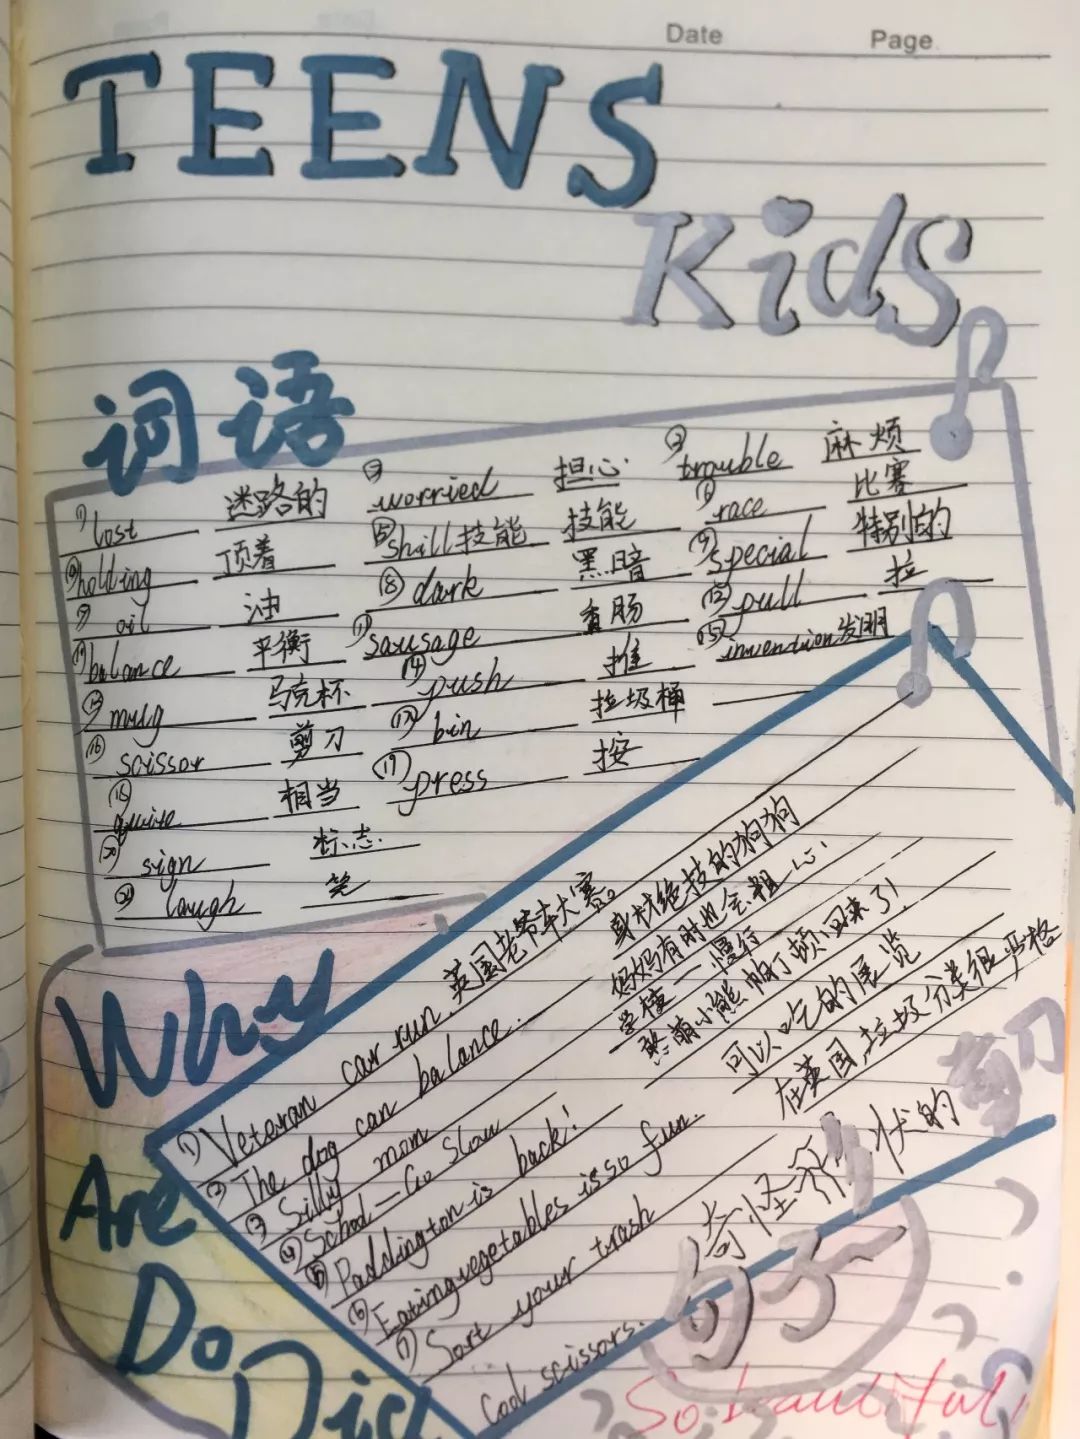 Date Page
TEENS
Kids
词语
①lost 迷路的 ②worried 担心 ③trouble 麻烦
holding 顶着 ⑤skill技能 技能 ⑥race 比赛
oil 油 ⑧dark 黑暗 ⑨special 特别的
balance 平衡 ⑪sausage 香肠 ⑫pull 拉
mug 马克杯 ⑭push 推 ⑮invention发明
⑯scissor 剪刀 ⑰bin 垃圾桶
⑱quite 相当 press 按
⑳sign 标志
laugh 笑
Why
Are
Do
Did
①Veteran car run. 英国老爷车大赛。
②The dog can balance. 身材绝技的狗狗
③Silly mom 妈妈有时也会粗心.
④School—Go Slow 学校—慢行
⑤Paddington is back! 憨萌小熊帕丁顿回来了!
⑥Eating vegetables is so fun. 可以吃的展览
⑦Sort your trash 在英国,垃圾分类很严格
Cool scissors. 奇怪形状的剪刀
句子
So beautiful!